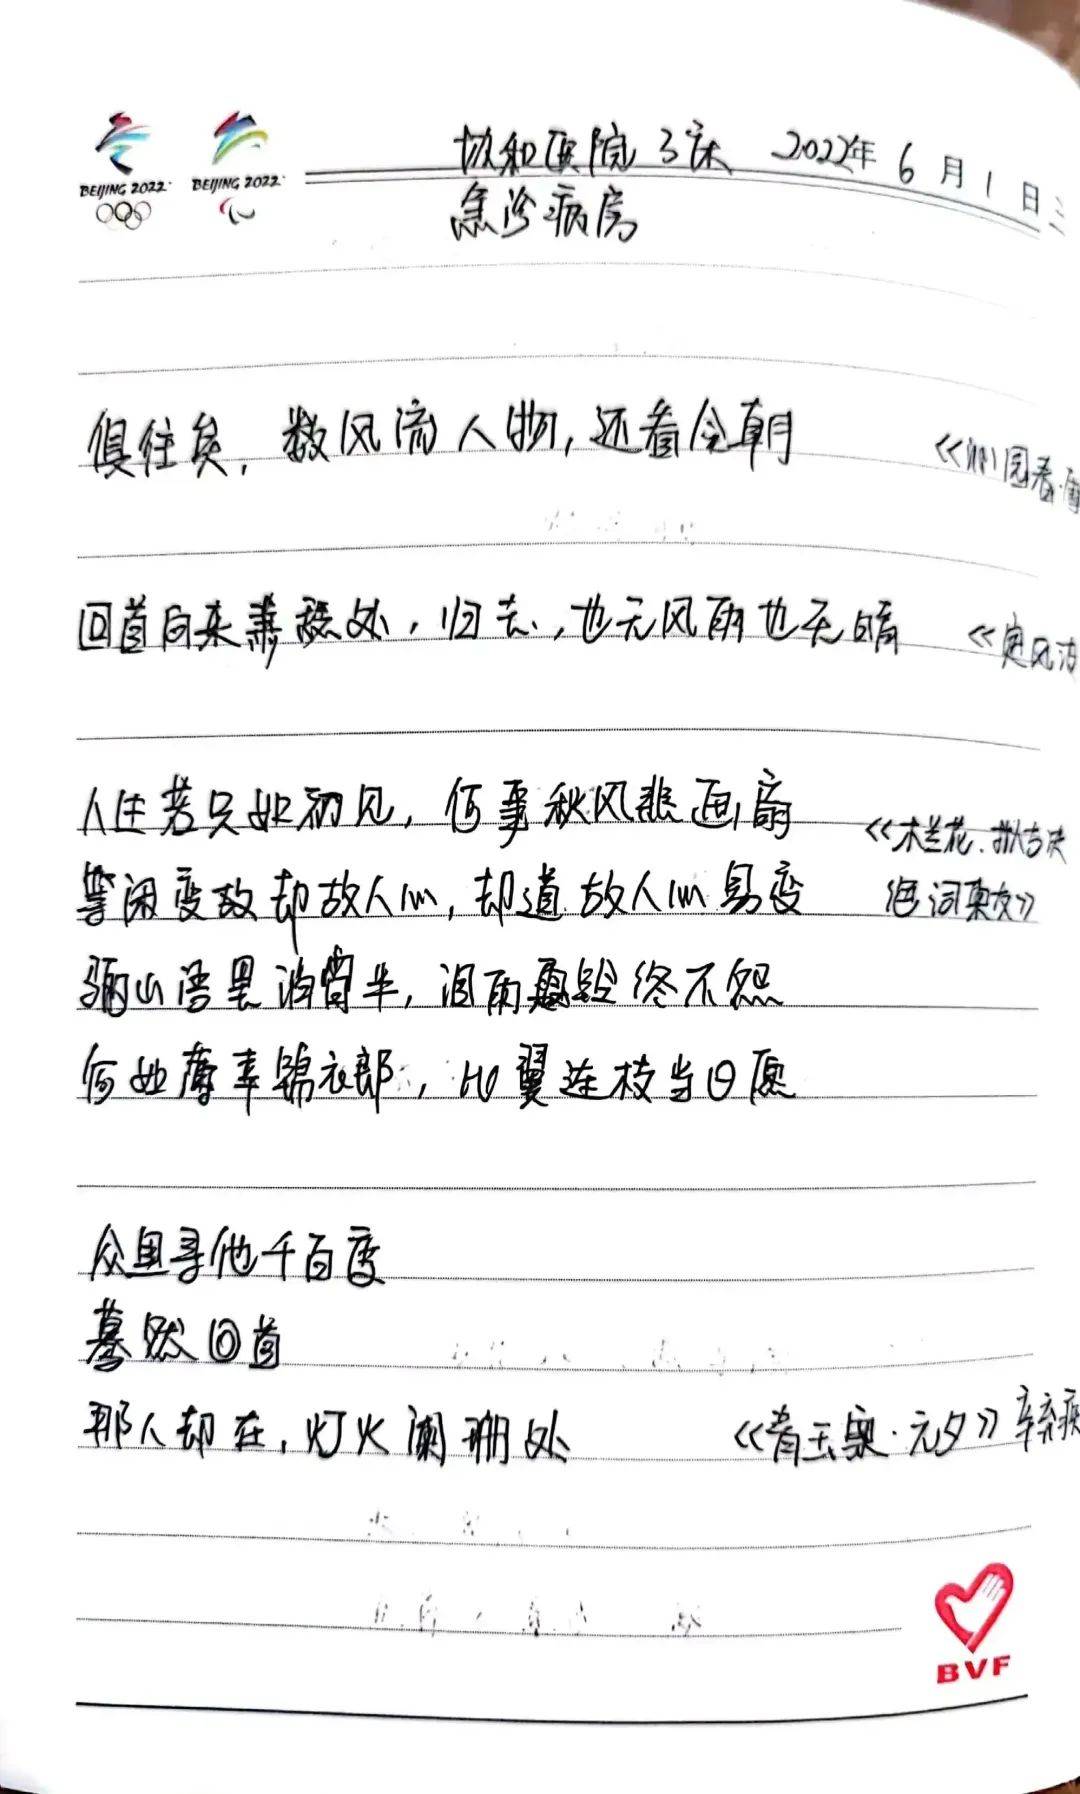 协和医院 3床 2022年6月1日
急诊病房
BEIJING 2022 BEIJING 2022
俱往矣，数风流人物，还看今朝 《沁园春·雪
回首向来萧瑟处，归去，也无风雨也无晴 《定风波
人生若只如初见，何事秋风悲画扇 《木兰花·拟古决
等闲变故却故人心，却道故人心易变 绝词柬友》
骊山语罢清宵半，泪雨零铃终不怨
何如薄幸锦衣郎，比翼连枝当日愿
众里寻他千百度
蓦然回首
那人却在，灯火阑珊处 《青玉案·元夕》辛弃疾
BVF